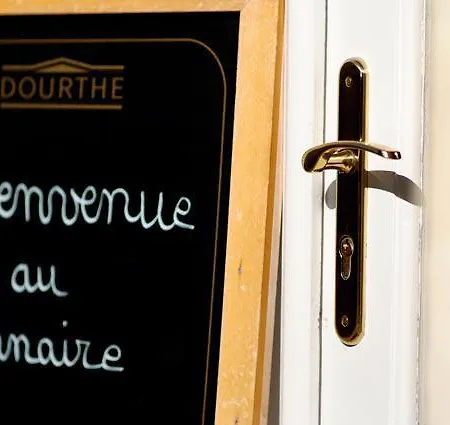 DOURTHE
ienvenue
au
naire